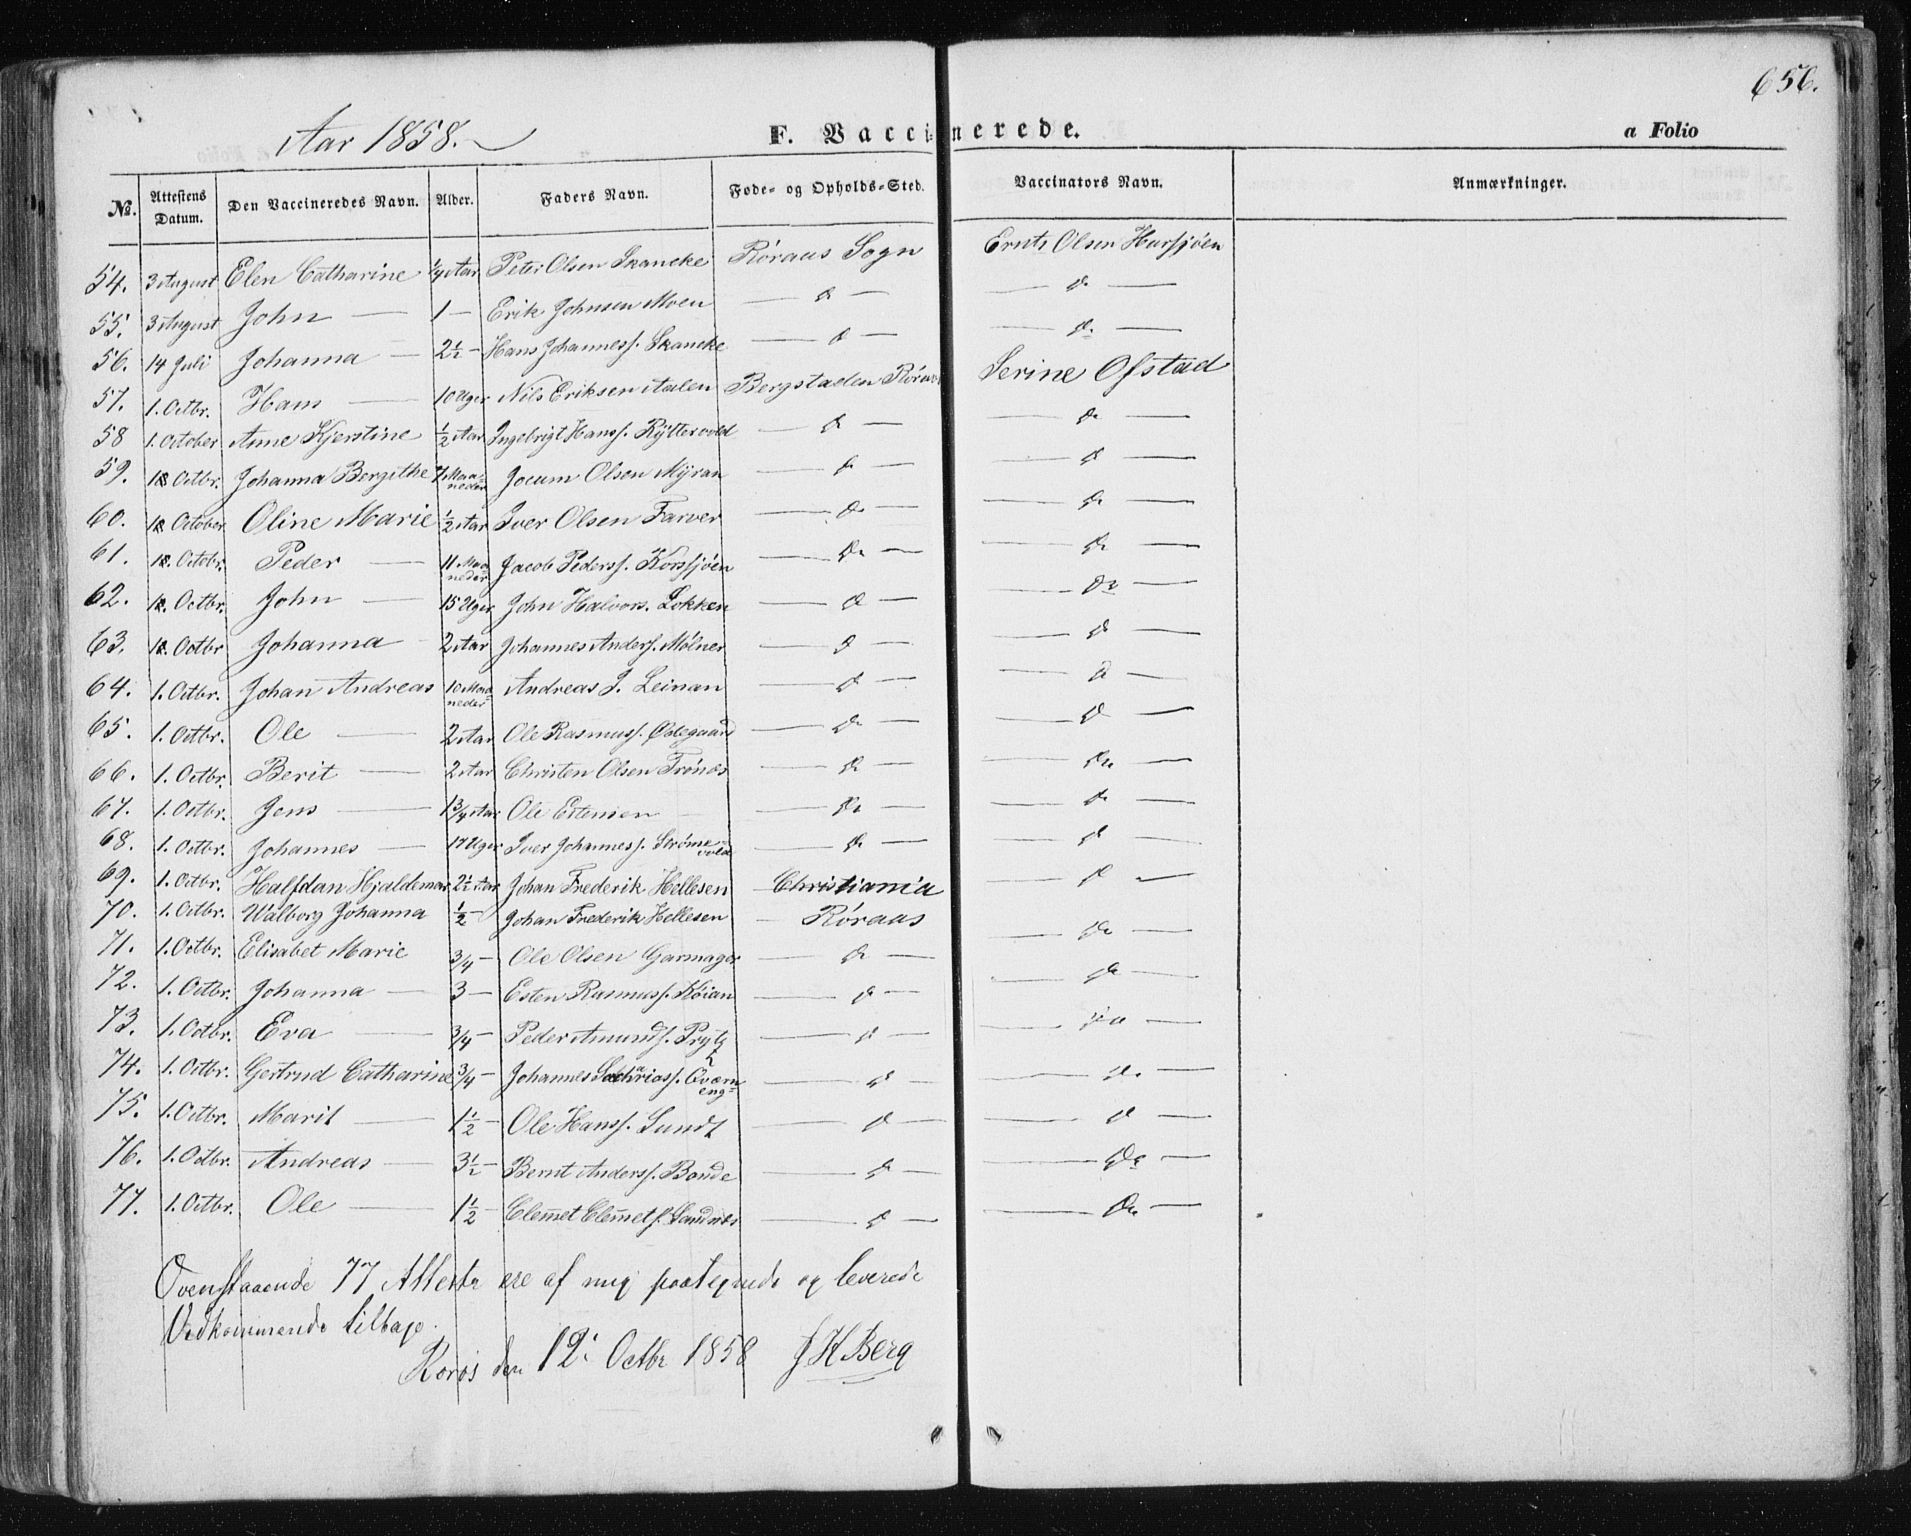 656.
Aar 1858.
F. Vaccinerede.
a Folio
No. Attestens Datum. Den Vaccineredes Navn. Alder. Faders Navn. Føde- og Opholds-Sted. Vaccinators Navn. Anmærkninger.
54. 3 August Elen Catharine Aar Peter Olsen Skancke Røraas Sogn Olsen Hursjøen
55. 3 August John — 1 — Erik Johnsen Moen — d — — do —
56. 14 Juli Johanna — 2½ — Hans Johannesf. Skancke — d — — do —
57. 1. Octbr. Hans — 10 Uger Nils Eriksen Aalen Bergstaden Røraas Serine Ofstad
58 1. October Anne Kjerstine ½ Aar Ingebrigt Hansf. Ryttervold — do — — do —
59. 1 Octbr. Johanna Bergithe 7 Maaneder Jocum Olsen Myran — do — — d —
60. 1 October Oline Marie ½ Aar Iver Olsen Farver — do — — do —
61. 1. Octobr. Peder — 11 Maaneder Jacob Pedersf. Korssjøen — do — — do —
62. 1. Octbr. John — 15 Uger John Halvors. Løkken — d — — do —
63. 1. Octbr Johanna 2 Aar Johannes Andersf. Mølner — d — — d —
64. 1. Octbr. Johan Andreas 10 Maaneder Andreas J. Leinan — d — — d —
65. 1. Octbr. Ole — 2 Aar Ole Rasmusf. Ødegaard — do — — d —
66. 1. Octbr. Berit — 2 Aar Christen Olsen Trønæs — do — — do —
67. 1. Octbr. Jens — 1¾ Aar Ole Estensen — do — — do —
68. 1. Octbr. Johannes — 17 Uger Iver Johannesf. Strømevold — do — — d —
69. 1. Octbr. Halfdan Hjaldemar 2½ Aar Johan Frederik Hellesen — Christiania — d —
70. 1. Octbr. Walborg Johanna ½ — Johan Frederik Hellesen — Røraas — do —
71. 1. Octbr. Elisabet Marie ¾ — Ole Olsen Garmager — do — — do —
72. 1. Octbr. Johanna — 3 — Esten Rasmusf. Køian — d — — do —
73. 1. Octbr. Eva — ¾ — Peder Amundf. Prytz — d —
74. 1. Octbr. Gertrud Catharine ¾ — Johannes Qværneng — d — — do —
75. 1. Octbr. Marit — 1½ — Ole Hansf. Sundt — d — — d —
76. 1. Octbr. Andreas — 3½ — Bernt Andersf. Bonde — d — — do —
77. 1. Octbr. Ole — 1½ — Clemet Clemetf. Sandnæs — d — — do —
Ovenstaaende 77 Attester ere af mig paategnede og leverede
Vedkommende tilbage.
Røros den 12. Octbr 1858 JHBerg